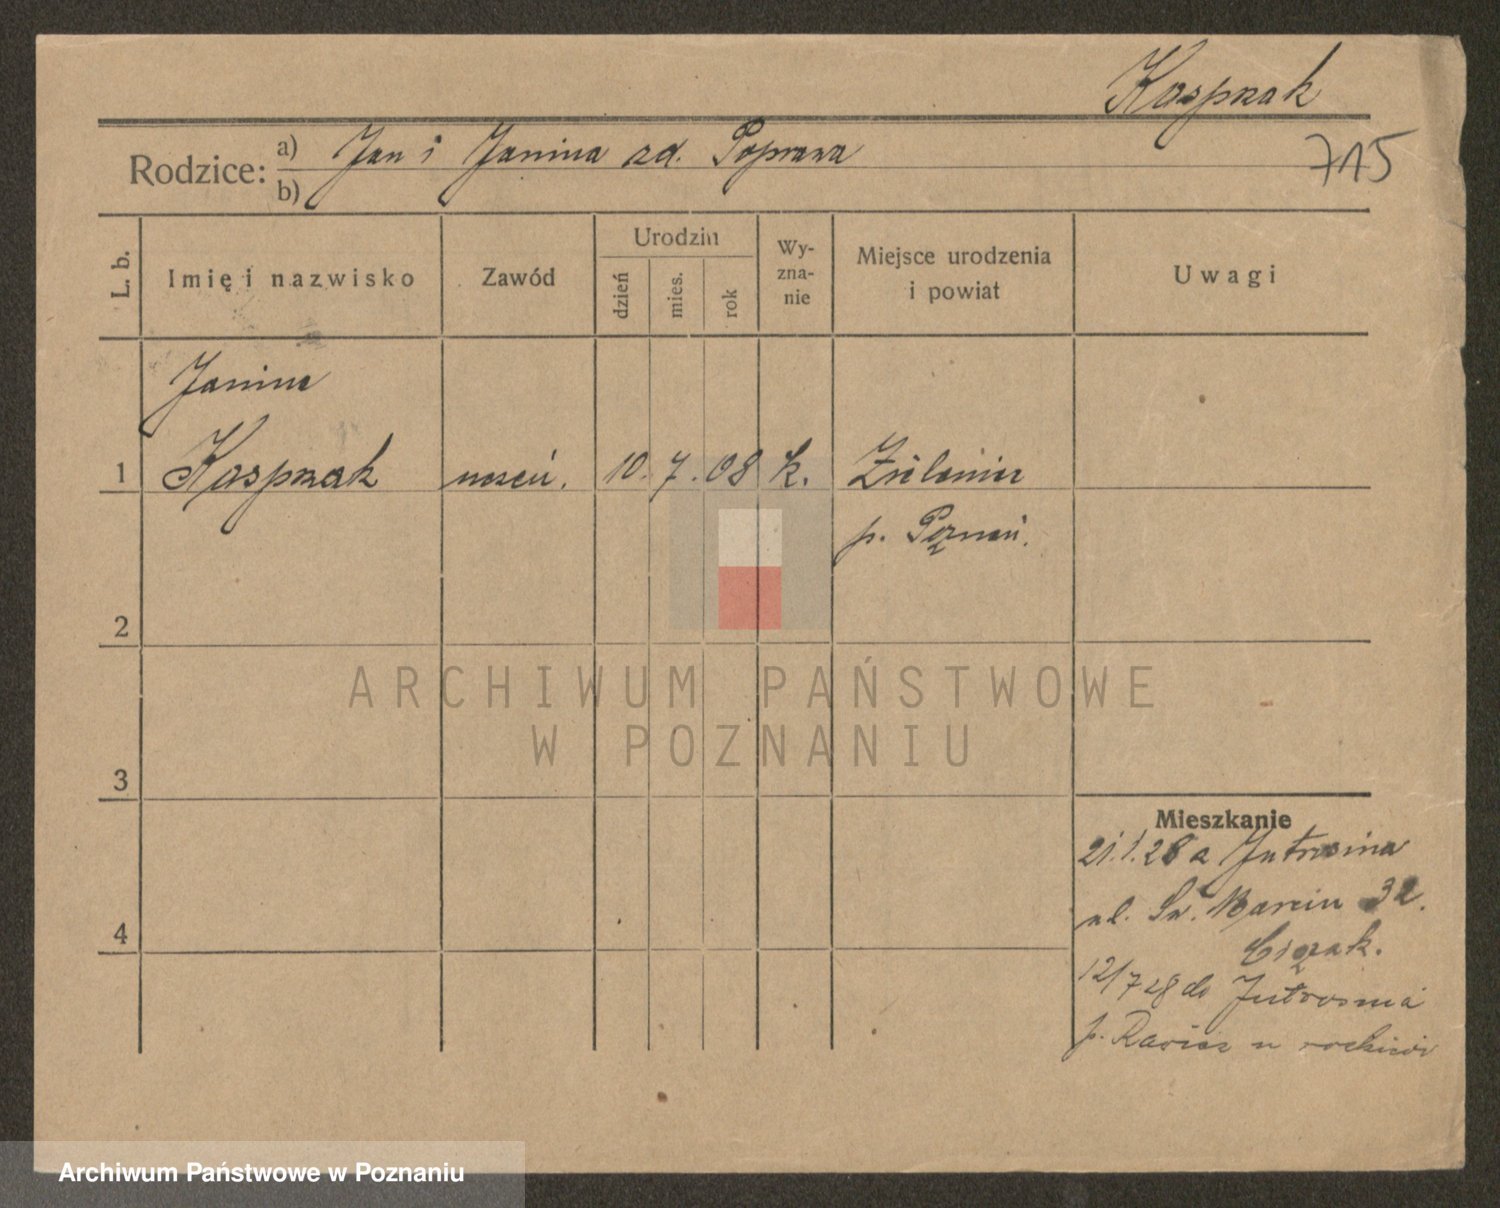 Kasprzak
715
Rodzice: a) Jan i Janina zd. Poprawa
b)
L. b.
Imię i nazwisko
Zawód
Urodzin
dzień
mies.
rok
Wy-
zna-
nie
Miejsce urodzenia
i powiat
Uwagi
Janina
1 Kasprzak uczeń. 10. 7. 08 k.
p. Poznań.
2
3
4
Mieszkanie
21.1.28 z Jutrosina
ul. Św. Marcin 32.
12/7 28 do Jutrosina
p. Rawicz
ARCHIWUM PAŃSTWOWE
W POZNANIU
Archiwum Państwowe w Poznaniu